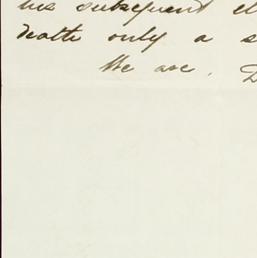 his subsequent
death only a s
We are. D